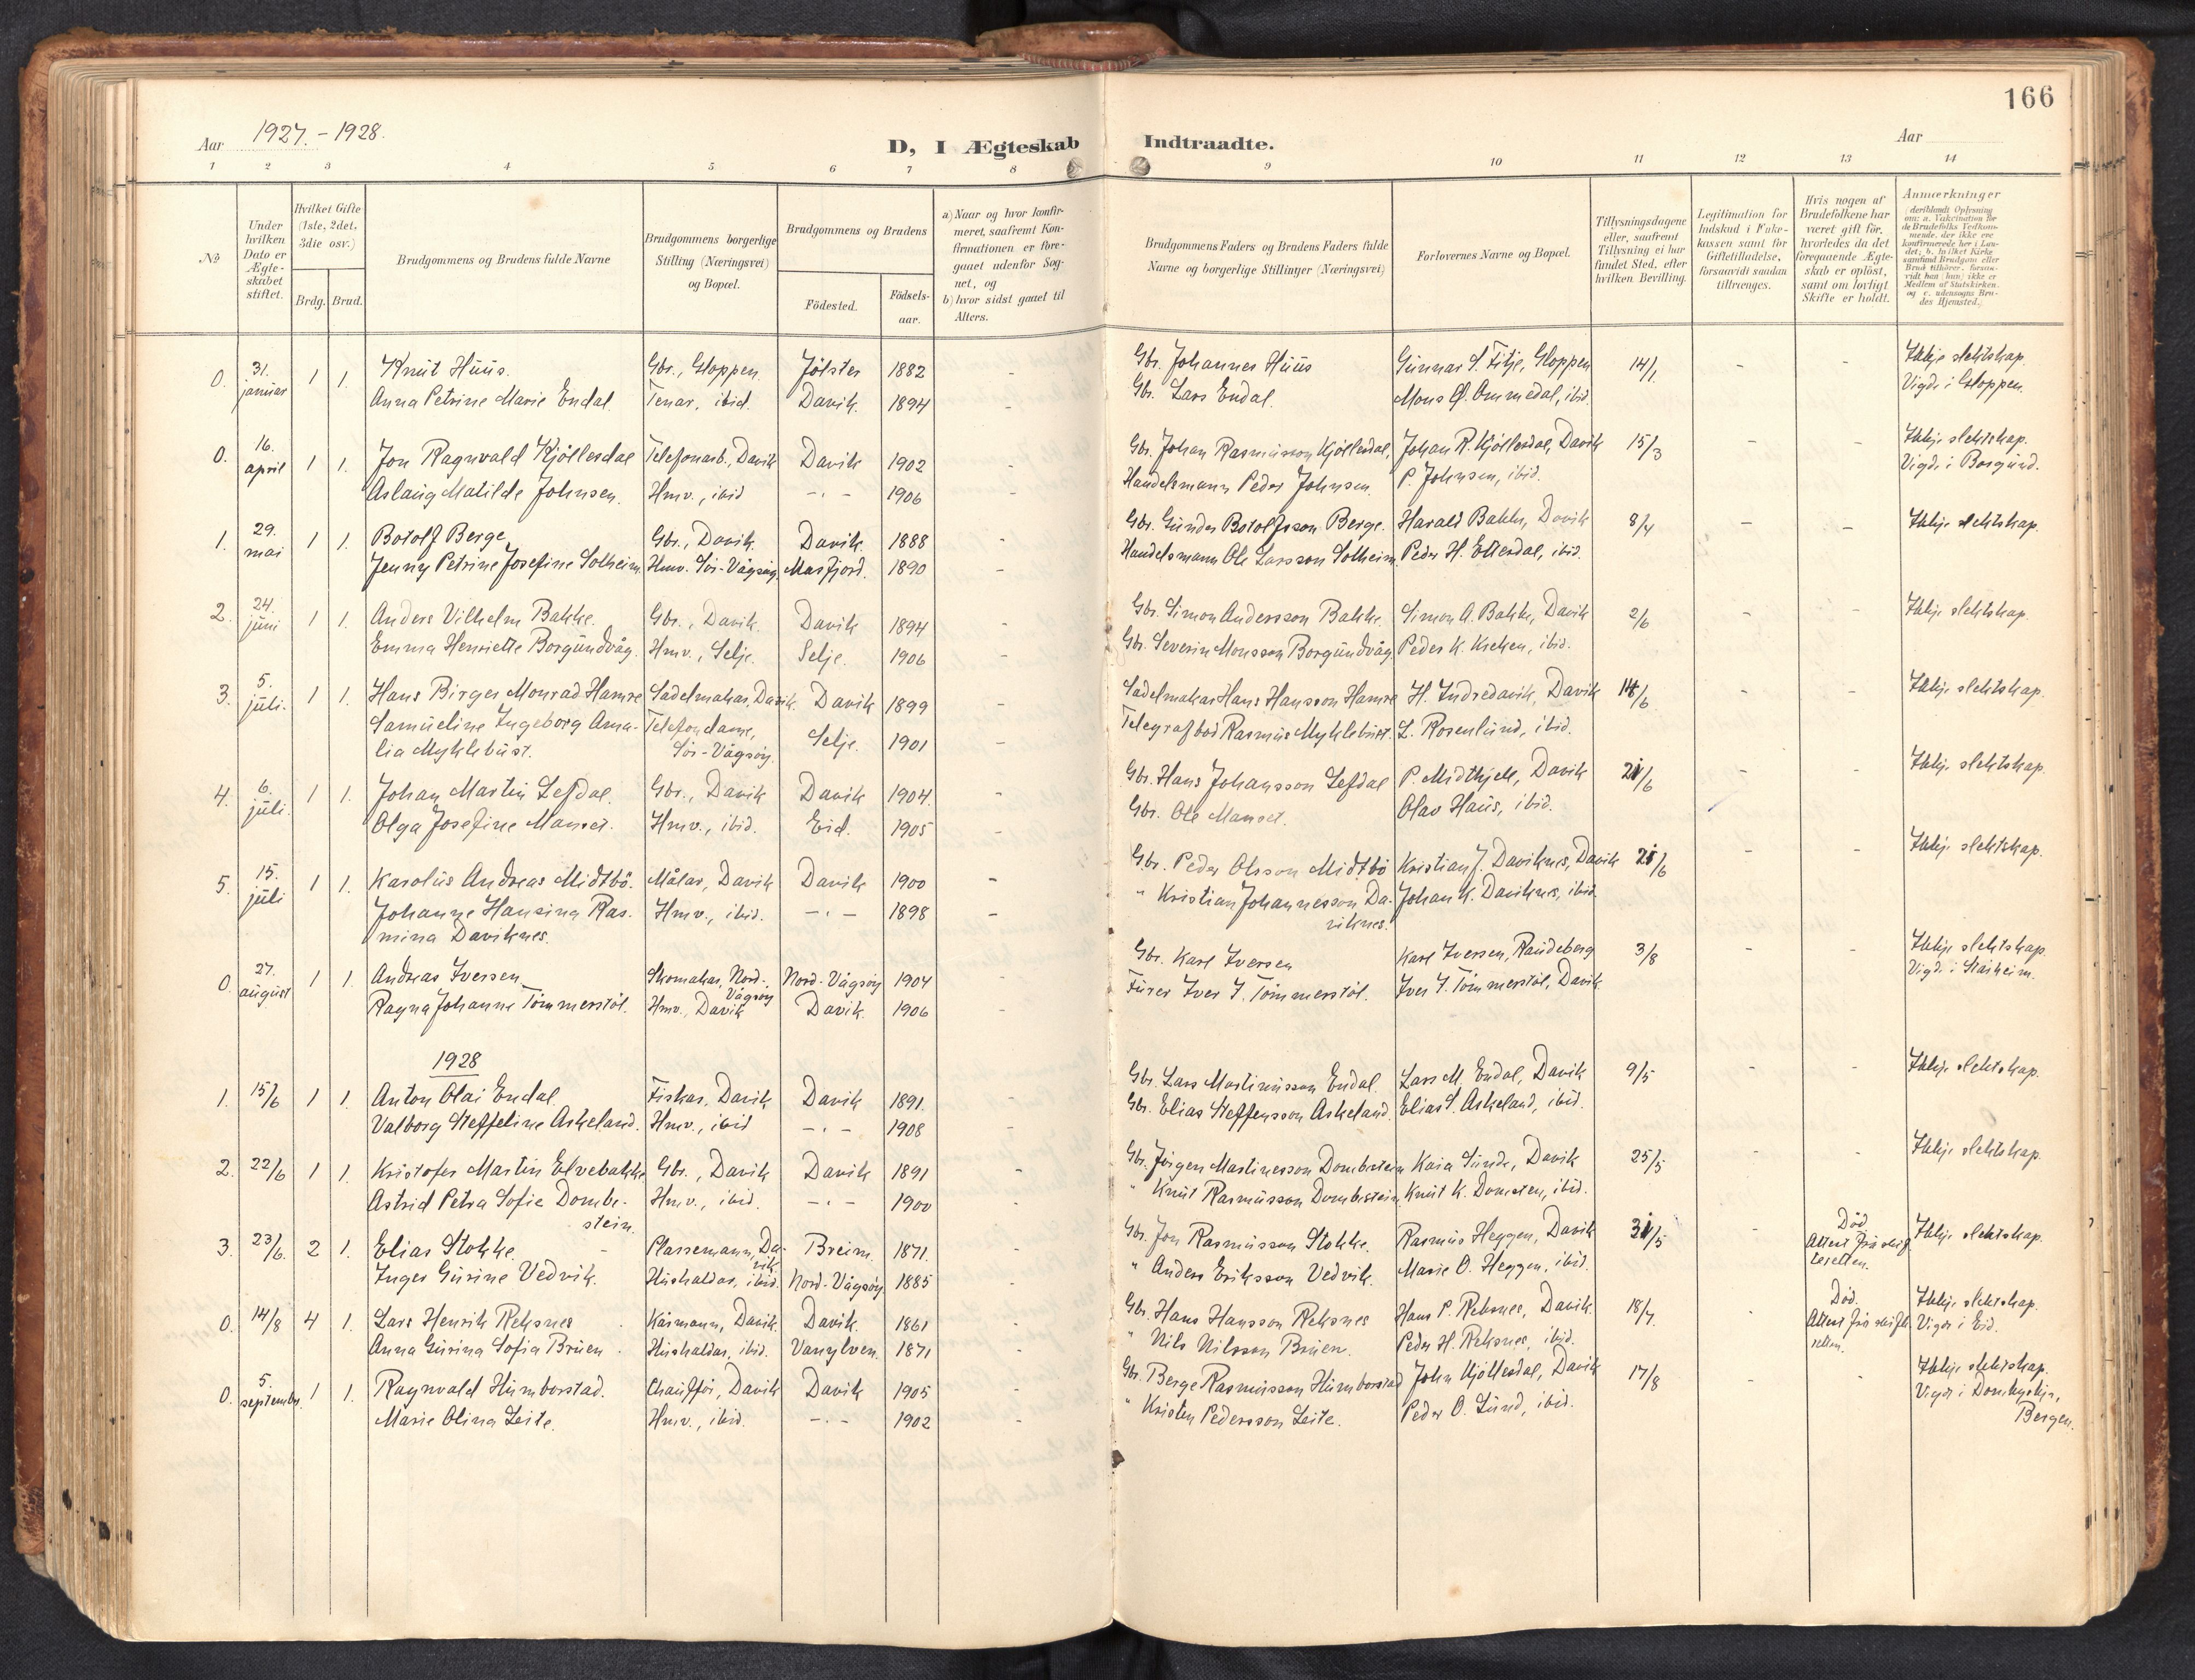 166
Aar 1927. - 1928.
D, I Ægteskab Indtraadte.
Aar
1 2 3 4 5 6 7 8 9 10 11 12 13 14
No
Under hvilken Dato er Ægteskabet stiftet.
Hvilket Gifte (1ste, 2det, 3die osv.)
Brdg. Brud.
Brudgommens og Brudens fulde Navne
Brudgommens borgerlige Stilling (Næringsvei) og Bopæl.
Brudgommens og Brudens
Födested. Födselsaar.
a) Naar og hvor konfirmeret, saafremt Konfirmationen er foregaaet udenfor Sognet, og
b) hvor sidst gaaet til Alters.
Brudgommens Faders og Brudens Faders fulde Navne og borgerlige Stillinger (Næringsvei)
Forlovernes Navne og Bopæl.
Tillysningsdagene eller, saafremt Tillysning ei har fundet Sted, efter hvilken Bevilling.
Legitimation for Indskud i Enkekassen samt for Giftetilladelse, forsaavidt saadan tiltrænges.
Hvis nogen af Brudefolkene har været gift för, hvorledes da det foregaaende Ægteskab er oplöst, samt om lovligt Skifte er holdt.
Anmærkninger (deriblandt Oplysning om: a. Vakcination for de Brudefolks Vedkommende, der ikke ere konfirmerede her i Landet; b. hvilket Kirkesamfund Brudgom eller Brud tilhörer, forsaavidt han (hun) ikke er Medlem af Statskirken, og c. udensogns Brudes Hjemsted.)
0. 31. januar 1 1. Knut Huus. Gbr., Gloppen. Jölster 1882 - Gbr. Johannes Huus Gunnar S. Fitje, Gloppen 14/1. - - Ikkje slektskap.
Anna Petrine Marie Endal. Tenar, ibid. Davik. 1894 - Gbr. Lars Endal. Mons Ø. Ommedal, ibid. Vigde i Gloppen.
0. 16. april 1 1. Jon Ragnvald Kjöllesdal Telefonarb., Davik Davik 1902 - Gbr. Johan Rasmusson Kjöllesdal, Johan R. Kjöllesdal, Davik 15/3 - - Ikkje slektskap.
Aslaug Matilde Johnsen. Hmv., ibid -.- 1906 - Handelsmann Peder Johnsen. P. Johnsen, ibid. Vigde i Borgund.
1. 29. mai 1 1. Botolf Berge Gbr., Davik. Davik. 1888 Gbr. Gunder Botolfsson Berge. Harald Bakke, Davik 8/4 - - Ikkje slektskap.
Jenny Petrine Josefine Solheim. Hmv. Sör-Vågsöy. Masfjord. 1890 - Handelsmann Ole Larsson Solheim. Peder H. Ettesdal, ibid.
2. 24. juni 1 1. Anders Vilhelm Bakke. Gbr., Davik. Davik 1894 - Gbr. Simon Andersson Bakke. Simon A. Bakke, Davik 2/6 - - Ikkje slektskap.
Emma Henriette Borgundvåg. Hmv., Selje. Selje. 1906 - Gbr. Severin Monsson Borgundvåg. Peder K. Kreken, ibid.
3. 5. juli. 1 1. Hans Birger Monrad Hamre Sadelmakar, Davik. Davik 1899 - Sadelmakar Hans Hansson Hamre H. Indredavik, Davik 14/6 - - Ikkje slektskap.
Samueline Ingeborg Ama- Telefondame, Selje. 1901 - Telegrafbod Rasmus Myklebust. L. Rosenlund, ibid.
lia Myklebust. Sör-Vågsöy.
4. 6. juli. 1 1. Johan Martin Lefdal. Gbr., Davik Davik 1904. - Gbr. Hans Johansson Lefdal P. Midthjell, Davik 21/6 - - Ikkje slektskap.
Olga Josefine Manset. Hmv., ibid. Eid. 1905 - Gbr. Ole Manset. Olav Haus, ibid.
5. 15. juli 1 1. Karolus Andreas Midtbö. Målar, Davik Davik 1900 - Gbr. Peder Olsson Midtbö Kristian J. Daviknes, Davik 21/6 - - Ikkje slektskap.
Johanne Hansina Ras- Hmv., ibid. -.- 1898 - " Kristian Johannesson Da- Johan K. Daviknes, ibid.
mina Daviknes. viknes.
0. 27. august 1 1. Andreas Iversen Skomakar, Nord-Vågsöy Nord-Vågsöy 1904 Gbr. Karl Iversen Karl Iversen, Raudeberg 3/8 - - Ikkje slektskap.
Ragna Johanne Tömmerstöl. Hmv., Davik Davik. 1906 - Furer Iver I. Tömmerstöl. Iver I. Tömmerstöl, Davik. Vigde i Stårheim.
1928
1. 15/6 1 1. Anton Olai Endal Fiskar, Davik Davik 1891. Gbr. Lars Martinusson Endal. Lars M. Endal, Davik 9/5 - - Ikkje slektskap.
Valborg Steffeline Askeland. Hmv., ibid -.- 1908 - Gbr. Elias Steffensson Askeland. Elias S. Askeland, ibid.
2. 22/6 1 1. Kristofer Martin Elvebakke Gbr., Davik Davik 1891 - Gbr. Jörgen Martinesson Dombestein Kaia Sunde, Davik 25/5 - - Ikkje slektskap.
Astrid Petra Sofie Dombe- Hmv., ibid. -.- 1900 - " Knut Rasmusson Dombestein, Knut K. Domsten, ibid.
stein.
3. 23/6. 2 1. Elias Stokke. Plassemann, Davik Breim. 1871. - Gbr. Jon Rasmusson Stokke. Rasmus Heggen, Davik 31/5 - Död. Attest frå skifteretten. Ikkje slektskap.
Inger Gurine Vedvik. Hushaldar, ibid. Nord-Vågsöy. 1885 - " Anders Eriksson Vedvik. Marie O. Heggen, ibid.
0. 14/8 4 1. Lars Henrik Reksnes Kårmann, Davik. Davik. 1861 - Gbr. Hans Hansson Reksnes Hans P. Reksnes, Davik. 18/7. - Död. Attest frå skifteretten. Ikkje slektskap.
Anna Gurina Sofia Bruen. Hushaldar, ibid. Vanylven. 1871 - " Nils Nilsson Bruen. Peder H. Reksnes, ibid. Vigde i Eid.
0. 5. september. 1 1. Ragnvald Humborstad. Chauffför, Davik Davik 1905 - Gbr. Berge Rasmusson Humborstad John Kjöllesdal, Davik 17/8 - - Ikkje slektskap.
Marie Olina Leite. Hmv., ibid. -.- 1902 - " Kristen Pedersson Leite. Peder O. Lund, ibid. Vigde i Domkyrkja, Bergen.